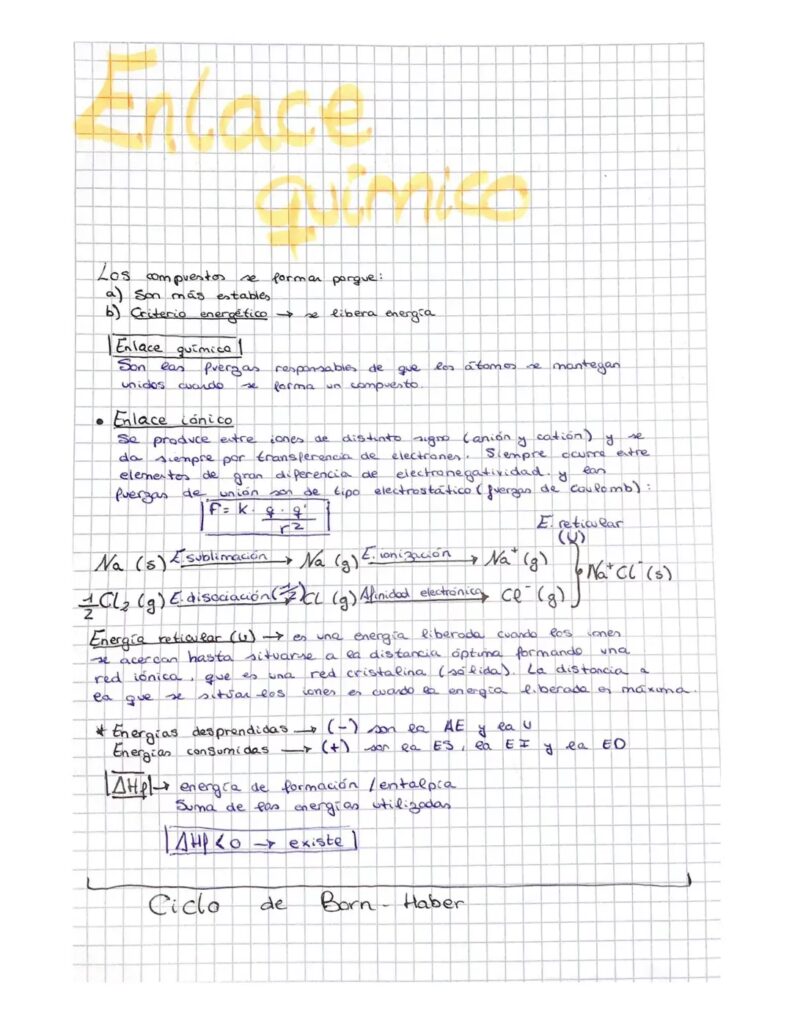 Enlace
químico
Los compuestos se forman porque:
a) Son más estables
b) Criterio energético → se libera energía
Enlace químico
Son las fuerzas responsables de que los átomos se mantegan
unidos cuando se forma un compuesto.
• Enlace iónico
Se produce entre iones de distinto signo (anión y catión) y se
da siempre por transferencia de electrones. Siempre ocurre entre
elementos de gran diferencia de electronegatividad. y las
fuerzas de unión son de tipo electrostático (fuerzas de Coulomb):
F = K · q · q' / r²
E. reticular
(U)
Na (s) E. sublimación → Na (g) E. ionización → Na⁺ (g)
Na⁺Cl⁻ (s)
½ Cl₂ (g) E. disociación (½) → Cl (g) Afinidad electrónica → Cl⁻ (g)
Energía reticular (U) → es una energía liberada cuando los iones
se acercan hasta situarse a la distancia óptima formando una
red iónica, que es una red cristalina (sólida). La distancia a
la que se sitúan los iones es cuando la energía liberada es máxima.
* Energías desprendidas → (-) son la AE y la U
Energías consumidas → (+) son la ES, la EI y la ED
ΔHf → energía de formación / entalpía
Suma de las energías utilizadas
ΔHf < 0 → existe
Ciclo de Born - Haber